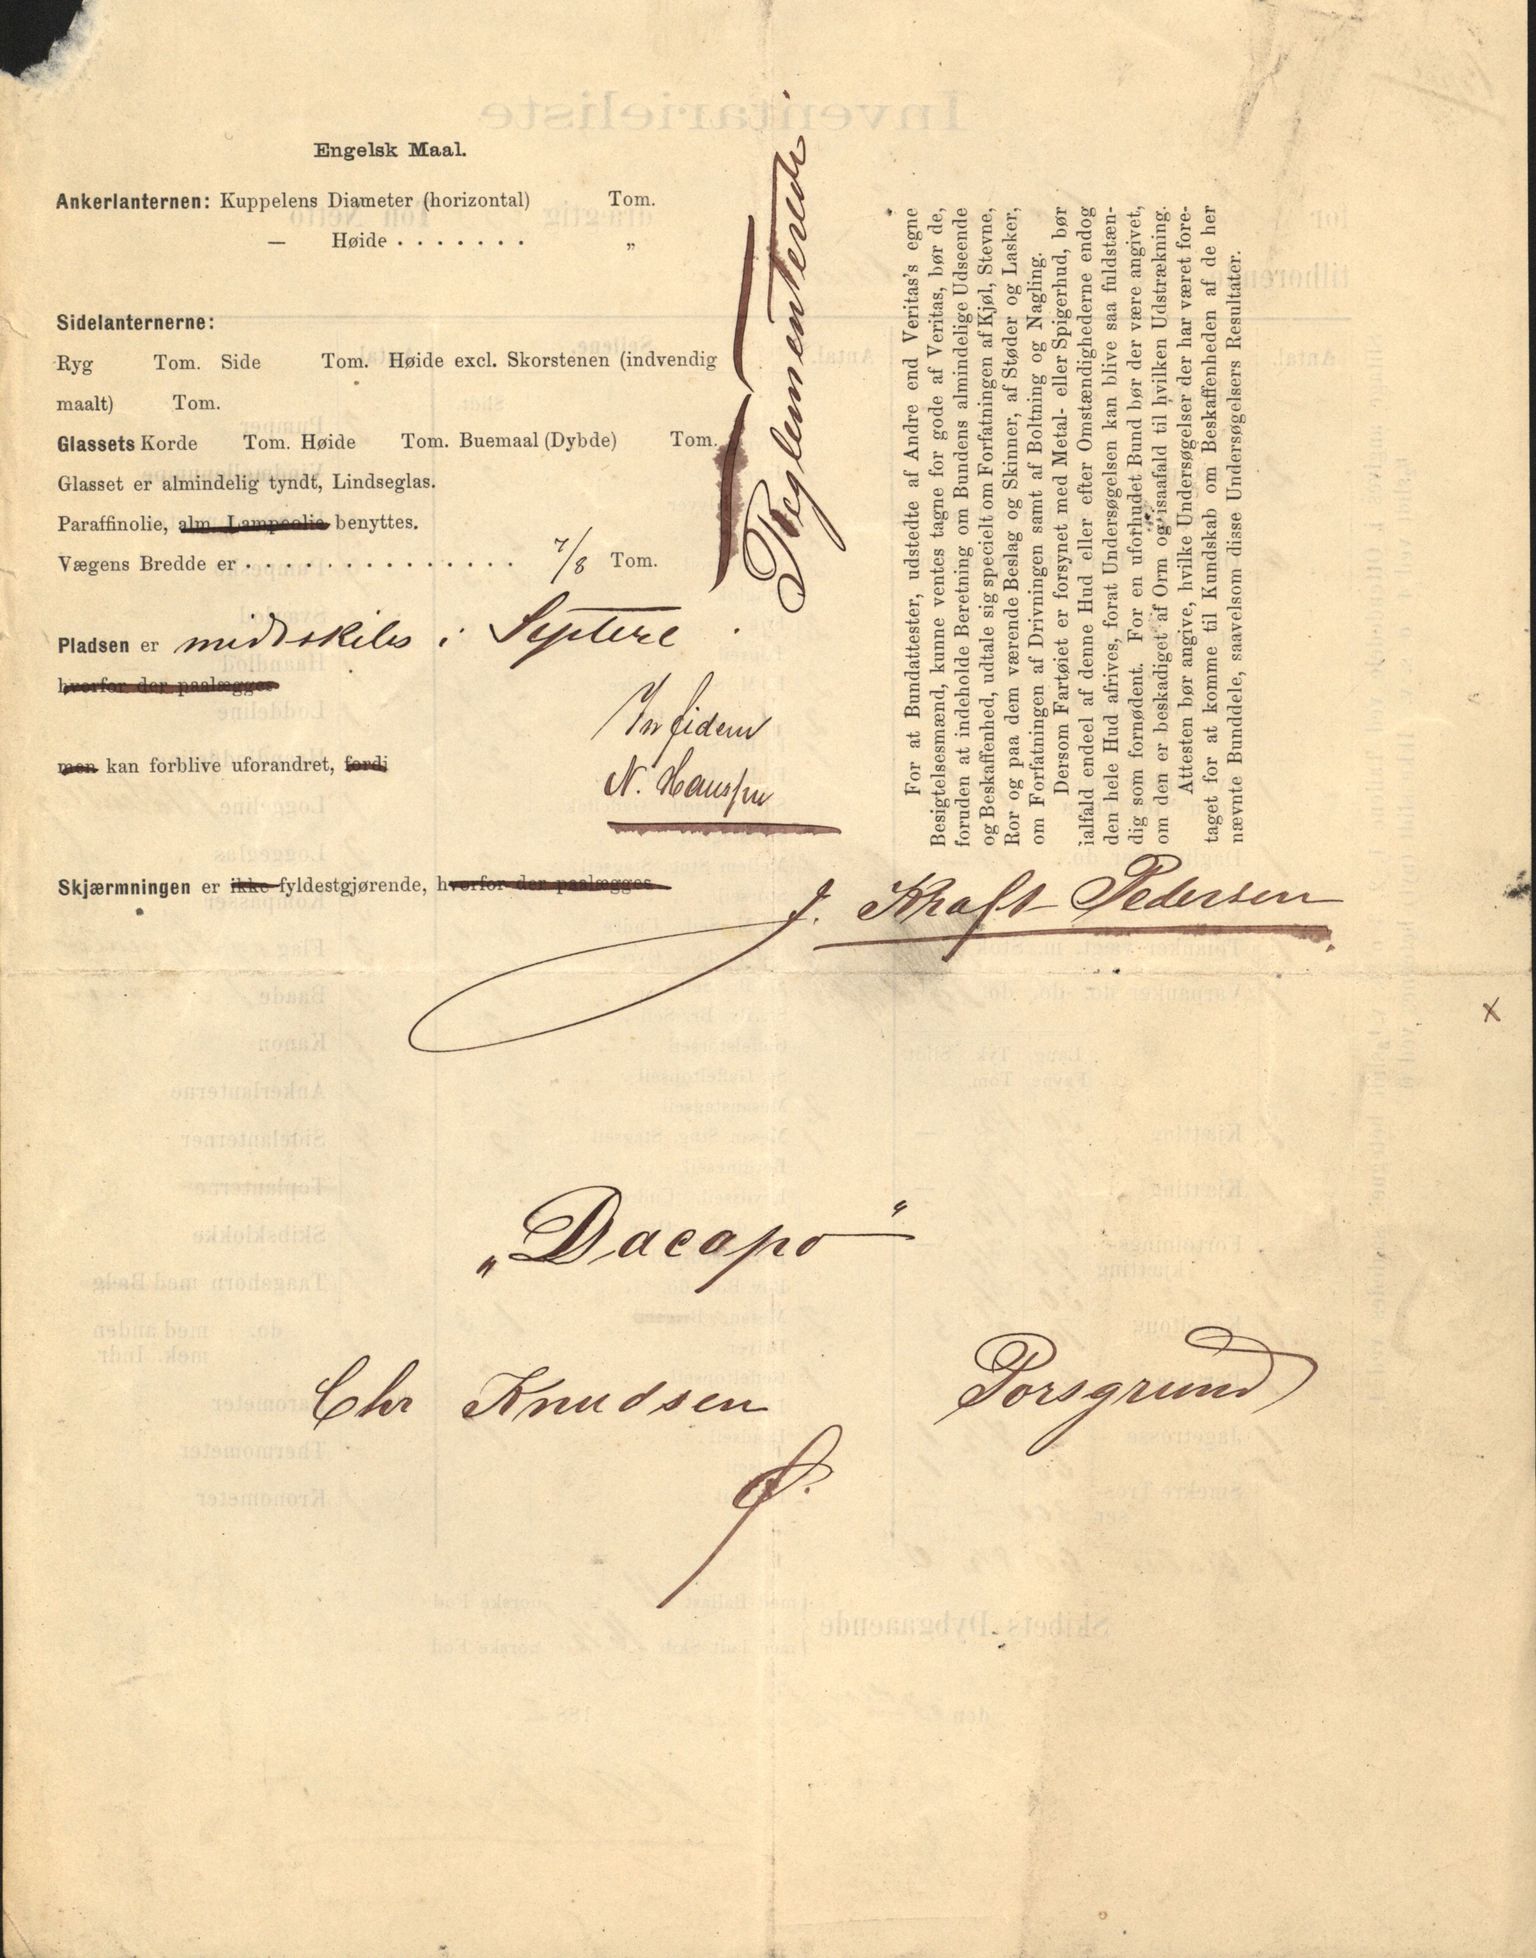 Engelsk Maal.
Ankerlanternen: Kuppelens Diameter (horizontal) Tom.
— Høide . . . . . . . „
Sidelanternerne:
Ryg Tom. Side Tom. Høide excl. Skorstenen (indvendig
maalt) Tom.
Glassets Korde Tom. Høide Tom. Buemaal (Dybde) Tom.
Glasset er almindelig tyndt, Lindseglas.
Paraffinolie, alm. Lampeolie benyttes.
Vægens Bredde er . . . . . . . . . . . . . . . 7/8 Tom.
Pladsen er midtskibs i
hvorfor der paalægges
men kan forblive uforandret, fordi
Skjærmningen er ikke fyldestgjørende, hvorfor der paalægges
Reglementerede
In fidem
N. Hansen
For at Bundattester, udstedte af Andre end Veritas's egne
Besigtelsesmænd, kunne ventes tagne for gode af Veritas, bør de,
foruden at indeholde Beretning om Bundens almindelige Udseende
og Beskaffenhed, udtale sig specielt om Forfatningen af Kjøl, Stevne,
Ror og paa dem værende Beslag og Skinner, af Støder og Lasker,
om Forfatningen af Drivningen samt af Boltning og Nagling.
Dersom Fartøiet er forsynet med Metal- eller Spigerhud, bør
ialfald endeel af denne Hud eller efter Omstændighederne endog
den hele Hud afrives, forat Undersøgelsen kan blive saa fuldstæn-
dig som fornødent. For en uforhudet Bund bør der være angivet,
om den er beskadiget af Orm og isaafald til hvilken Udstrækning.
Attesten bør angive, hvilke Undersøgelser der har været fore-
taget for at komme til Kundskab om Beskaffenheden af de her
nævnte Bunddele, saavelsom disse Undersøgelsers Resultater.
J. Kraft Pedersen
x
„Dacapo"
Chr Knudsen Porsgrund